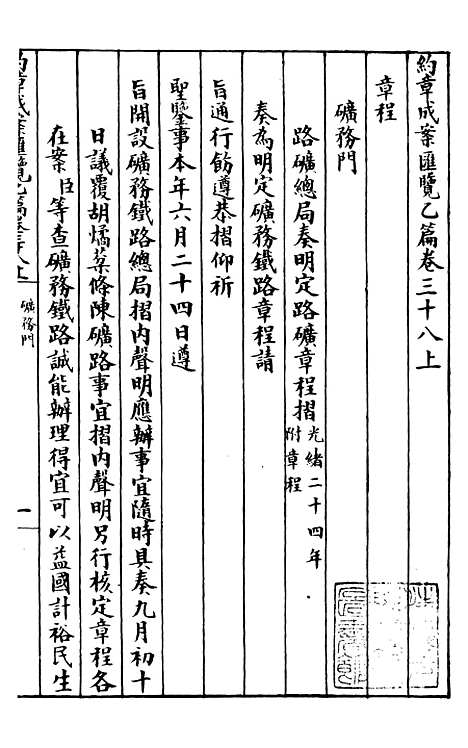 約章成案匯覽乙篇卷三十八上
章程
礦務門
路礦總局奏明定路礦章程摺光緒二十四年
附章程
奏為明定礦務鐵路章程請
旨通行飭遵恭摺仰祈
聖鑒事本年六月二十四日遵
旨開設礦務鐵路總局摺內聲明應辦事宜隨時具奏九月初十
日議覆胡燏棻條陳礦路事宜摺內聲明另行核定章程各
在案臣等查礦務鐵路誠能辦理得宜可以益國計裕民生
約章成案匯覽乙篇卷三十八上
礦務門
一